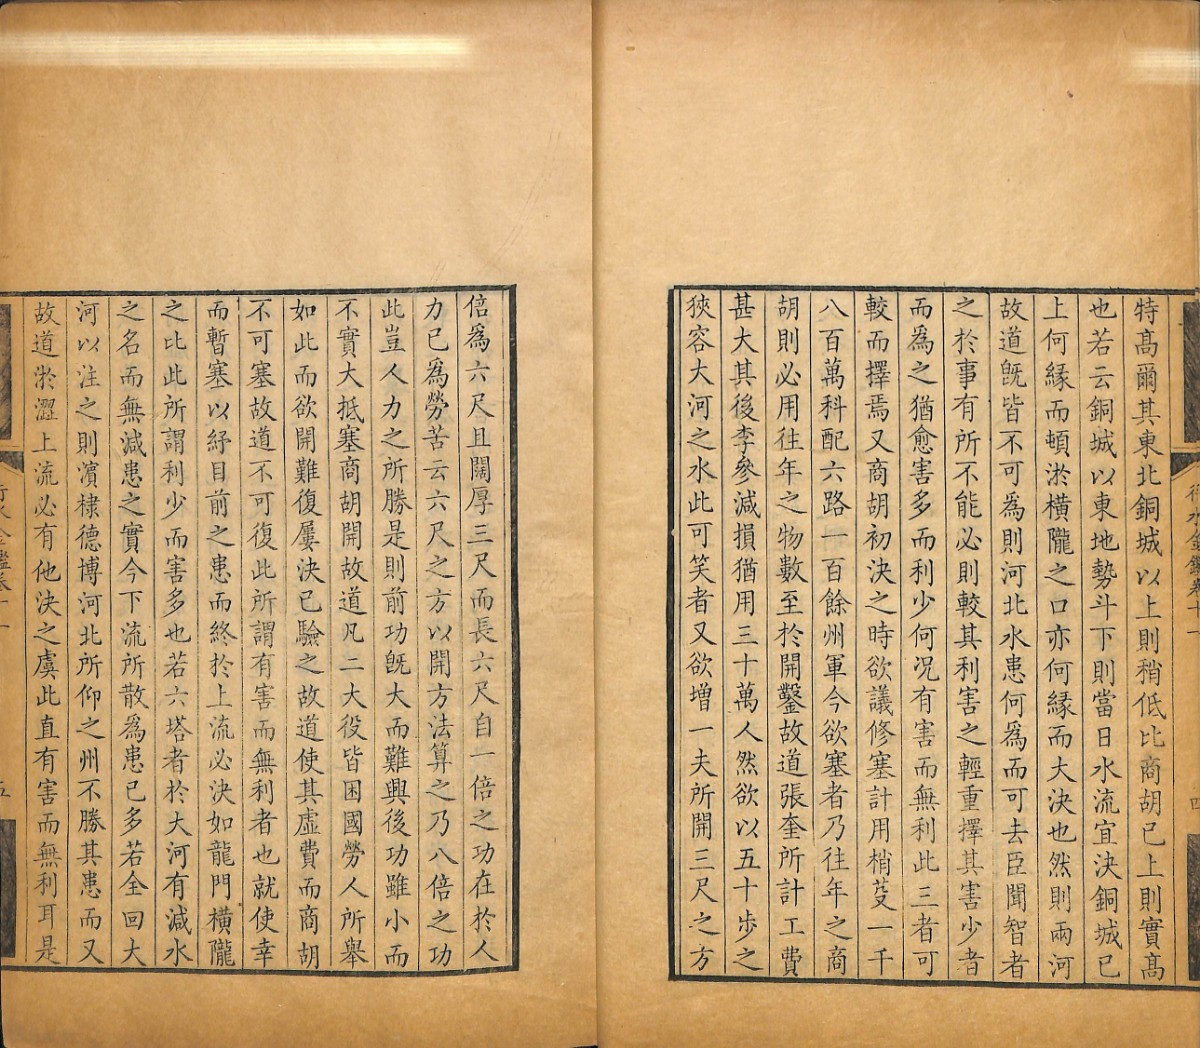 特髙爾其東北銅城以上則稍低比商胡已上則實髙
也若云銅城以東地勢斗下則當日水流宜決銅城已
上何縁而頓淤橫隴之口亦何縁而大決也然則兩河
故道旣皆不可爲則河北水患何爲而可去臣聞智者
之於事有所不能必則較其利害之輕重擇其害少者
而爲之猶愈害多而利少何况有害而無利此三者可
較而擇焉又商胡初決之時欲議修塞計用梢芟一千
八百萬科配六路一百餘州軍今欲塞者乃往年之商
胡則必用往年之物數至於開鑿故道張奎所計工費
甚大其後李參減損猶用三十萬人然欲以五十歩之
狹容大河之水此可笑者又欲增一夫所開三尺之方
倍爲六尺且闊厚三尺而長六尺自一倍之功在於人
力已爲勞苦云六尺之方以開方法算之乃八倍之功
此豈人力之所勝是則前功旣大而難興後功雖小而
不實大抵塞商胡開故道凡二大役皆困國勞人所舉
如此而欲開難復屢決已驗之故道使其虛費而商胡
不可塞故道不可復此所謂有害而無利者也就使幸
而暫塞以紓目前之患而終於上流必決如龍門橫隴
之比此所謂利少而害多也若六塔者於大河有減水
之名而無減患之實今下流所散爲患已多若全回大
河以注之則濵棣德博河北所仰之州不勝其患而又
故道淤澀上流必有他決之虞此直有害而無利耳是